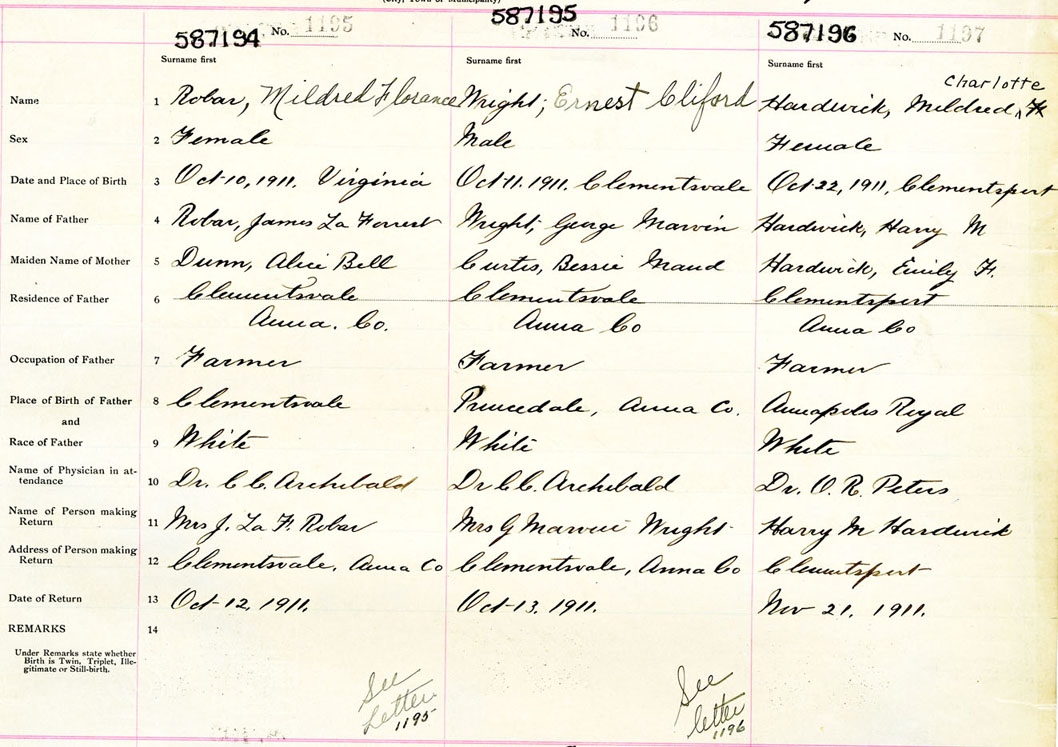 (City, Town or Municipality)
587194 No. 1195 587195 No. 1196 587196 No. 1197
Surname first Surname first Surname first
Charlotte
Name 1 Robar, Mildred Florance Wright, Ernest Cliford Hardwick, Mildred,
Sex 2 Female Male Female
Date and Place of Birth 3 Oct-10, 1911. Virginia Oct-11. 1911. Clementsvale Oct-22, 1911, Clementsport
Name of Father 4 Robar, James La Forrest Wright, George Marvin Hardwick, Harry M
Maiden Name of Mother 5 Dunn, Alice Bell Curtis, Bessie Maud Hardwick, Emily H.
Residence of Father 6 Clementsvale Clementsvale Clementsport
Anna. Co. Anna Co Anna Co
Occupation of Father 7 Farmer Farmer Farmer
Place of Birth of Father 8 Clementsvale Princedale, Anna Co. Annapolis Royal
and
Race of Father 9 White White White
Name of Physician in at-
tendance 10 Dr. C C. Archibald Dr C C. Archibald Dr. O. R. Peters
Name of Person making
Return 11 Mrs J. La F. Robar Mrs G Marvin Wright Harry M Hardwick
Address of Person making
Return 12 Clementsvale, Anna Co Clementsvale, Anna Co Clementsport
Date of Return 13 Oct-12, 1911. Oct-13. 1911. Nov 21, 1911.
REMARKS 14
Under Remarks state whether
Birth is Twin, Triplet, Ille-
gitimate or Still-birth.
See See
Letter letter
1195 1196